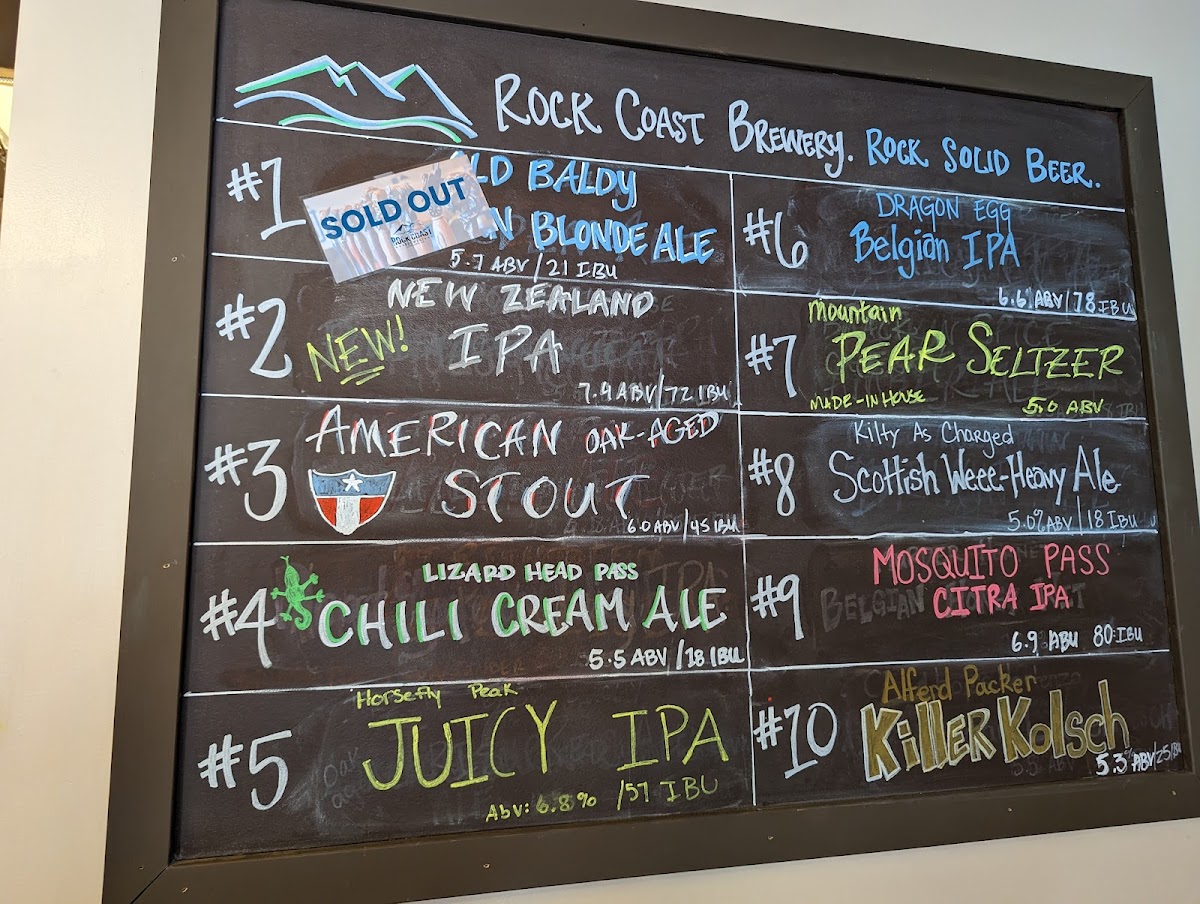 ROCK COAST BREWERY. ROCK SOLID BEER.
#1
SOLD OUT
ROCK COAST
BALDY
BLONDE ALE
5.7 ABV/21 IBU
#2
NEW!
NEW ZEALAND
IPA
7.4 ABV/72 IBU
#3
AMERICAN OAK-AGED
STOUT
6.0 ABV/45 IBU
#4
LIZARD HEAD PASS
CHILI CREAM ALE
5.5 ABV/18 IBU
#5
Horsefly Peak
JUICY IPA
Abv: 6.8% /57 IBU
#6
DRAGON EGG
Belgian IPA
6.6% ABV/78 IBU
#7
Mountain
PEAR SELTZER
MADE-IN HOUSE
5.0 ABV
#8
Kilty As Charged
Scottish Weee-Heavy Ale
5.0% ABV/18 IBU
#9
MOSQUITO PASS
CITRA IPA
6.9 ABU 80:IBU
#10
Alferd Packer
KillerKolsch
5.3% ABV/25 IBU